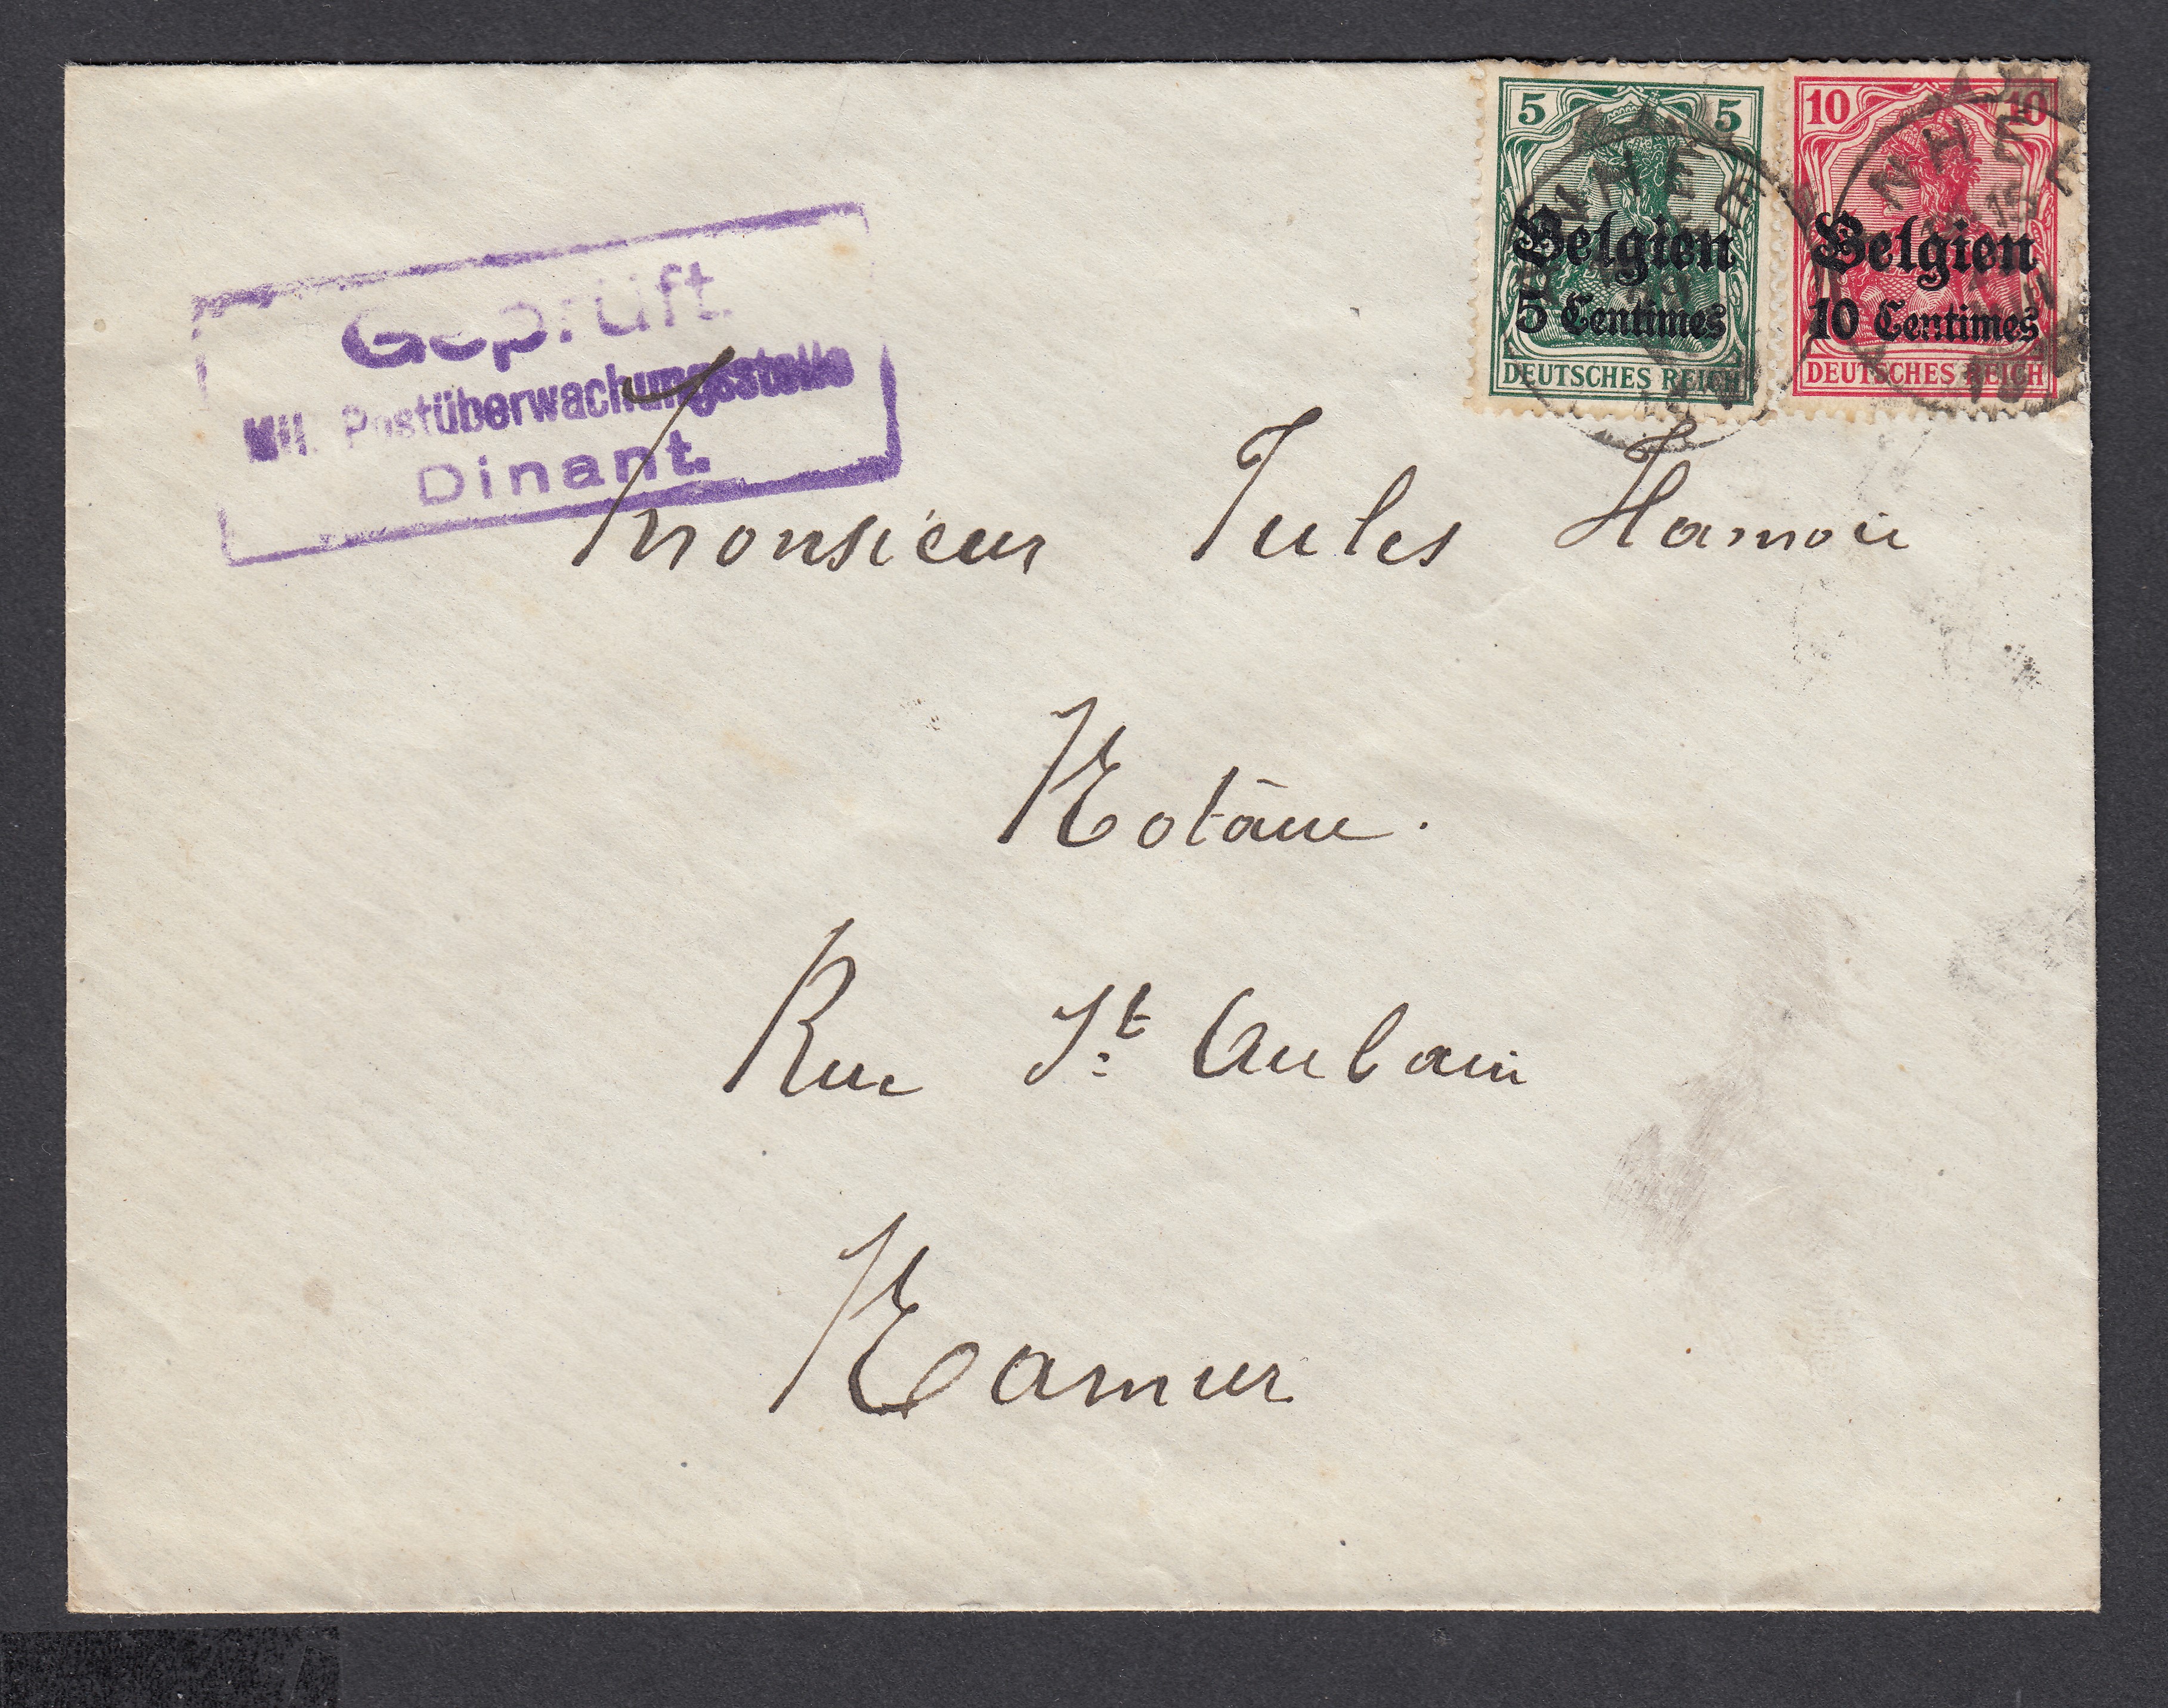 5 5
Belgien
5 Centimes
DEUTSCHES REICH
10 10
Belgien
10 Centimes
DEUTSCHES REICH
Geprüft.
Mil. Postüberwachungsstelle
Dinant.
Monsieur Jules Hamoir
Notaire.
Rue St Aubain
Namur